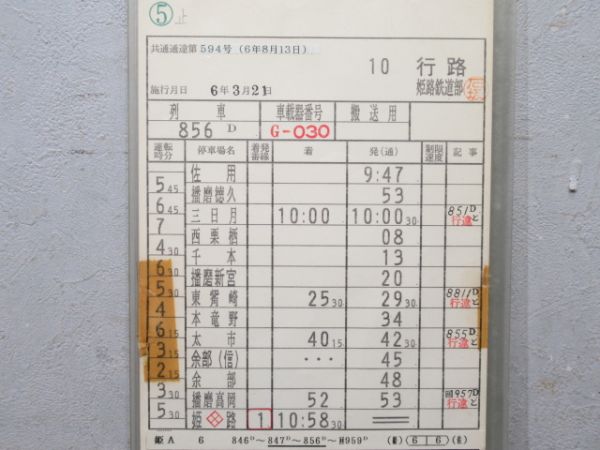 ⑤止
共通通達第594号(6年8月13日)
10 行路
施行月日 6年3月21日 姫路鉄道部
列車 車載器番号 搬送用
856D G-030
運転時分 停車場名 着発番線 着 発(通) 制限速度 記事
佐用 9:47
5 45
播磨徳久 53
6 45
三日月 10:00 10:00 30 851D と行違
7
西栗栖 08
4 30
千本 13
6 30
播磨新宮 20
5 30
東觜崎 25 30 29 30 881D と行違
4
本竜野 34
6 15
太市 40 15 42 30 855D と行違
3 15
余部(信) ・・・ 45
2 15
余部 48
3 30
播磨高岡 52 53 957D 行違と
5 30
姫路 1 10:58 30
姫A 6 846D〜847D〜856D〜H959D ( )(6|6)( )